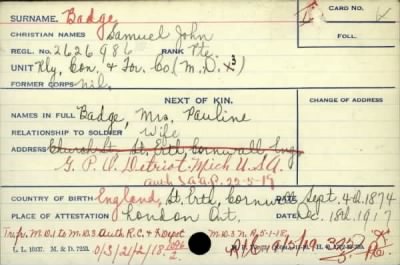 SURNAME. Badge
CARD NO.
CHRISTIAN NAMES Samuel John
FOLL.
REGL. NO. 2626986 RANK Pte.
UNIT Rly. Con. & For. Co (M.D. X3)
FORMER CORPS nil.
NEXT OF KIN.
CHANGE OF ADDRESS
NAMES IN FULL Badge, Mrs. Pauline
RELATIONSHIP TO SOLDIER Wife
ADDRESS Churchst St. Erth, Cornwall Eng
G.P.O. Detriot Mich USA
auth S.a.a.P. 22-5-19
COUNTRY OF BIRTH England, St. Erth, Cornwall Sept. 4th. 1874
PLACE OF ATTESTATION London Ont. Dec. 18th. 1917
Trsf. M.D.1 to M.D.3 Auth R.C. & F. Depot
M.D.3 N.R. 5-1-18
L. L. 10437. M. & D. 7253.